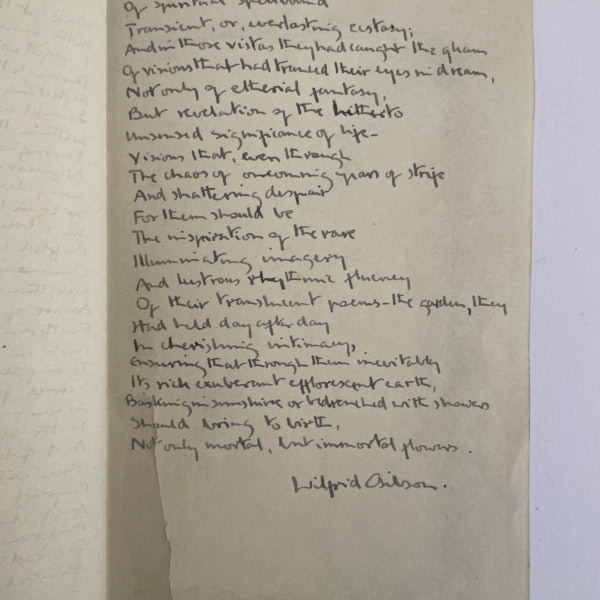 Of spiritual spellbound
Transient, or, everlasting ecstasy;
And in those vistas they had caught the gleam
Of visions that had tranced their eyes in dream,
Not only of etherial fantasy,
But revelation of the hitherto
Unsensed significance of life—
Visions that, even through
The chaos of oncoming years of strife
And shattering despair
For them should be
The inspiration of the rare
Illuminating imagery
And lustrous rhythmic fluency
Of their translucent poems—the garden, they
Had held day after day
In cherishing intimacy,
Ensuring that through them inevitably
Its rich exuberant efflorescent earth,
Basking in sunshine or bedrenched with showers
Should bring to birth,
Not only mortal, but immortal flowers.
Wilfrid Gibson.